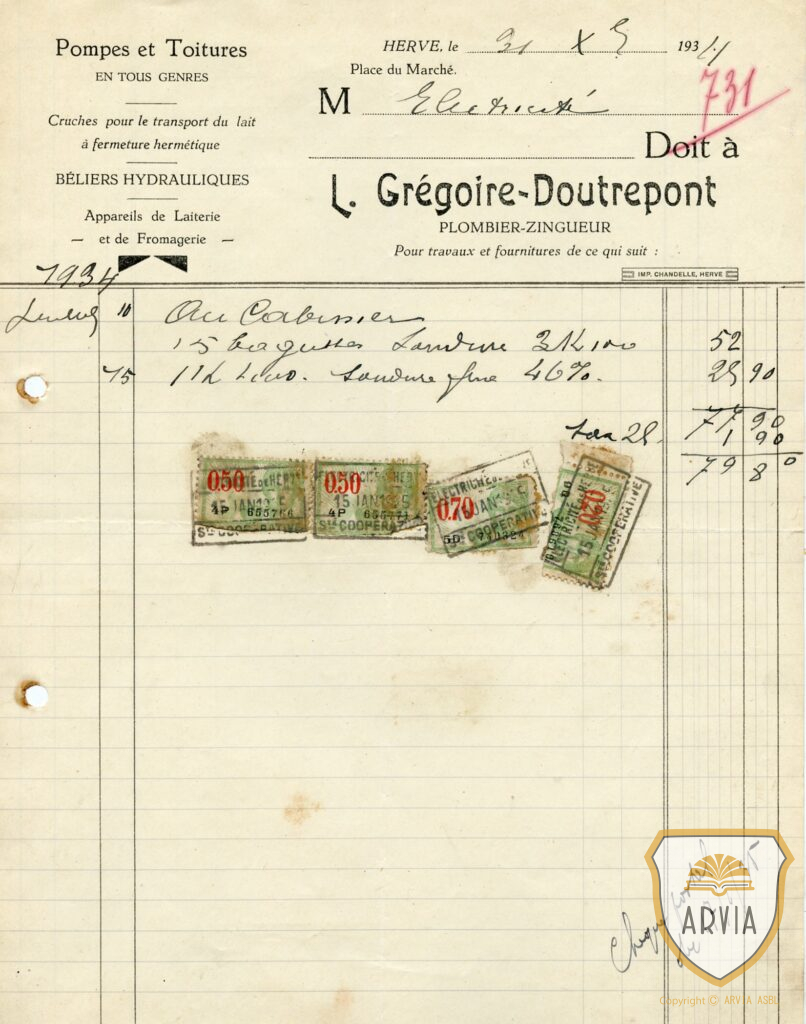 Pompes et Toitures
EN TOUS GENRES
Cruches pour le transport du lait
à fermeture hermétique
BÉLIERS HYDRAULIQUES
Appareils de Laiterie
— et de Fromagerie —
HERVE, le 31 X 1934
Place du Marché.
731
M Electricité
Doit à
L. Grégoire-Doutrepont
PLOMBIER-ZINGUEUR
Pour travaux et fournitures de ce qui suit :
IMP. CHANDELLE, HERVE
1934
10 Au
15 baguettes Soudure 3K100 52
15 soudure fine 46%. 25 90
77 90
1 90
79 80
0.50
15 JAN 1935
4P
Sté COOPÉRATIVE
0.50
15 JAN 1935
4P
Sté COOPÉRATIVE
0.70
15 JAN
5D
Sté COOPÉRATIVE
0.70
15 JAN
Sté COOPÉRATIVE
Chèque postal
ARVIA
Copyright © ARVIA ASBL